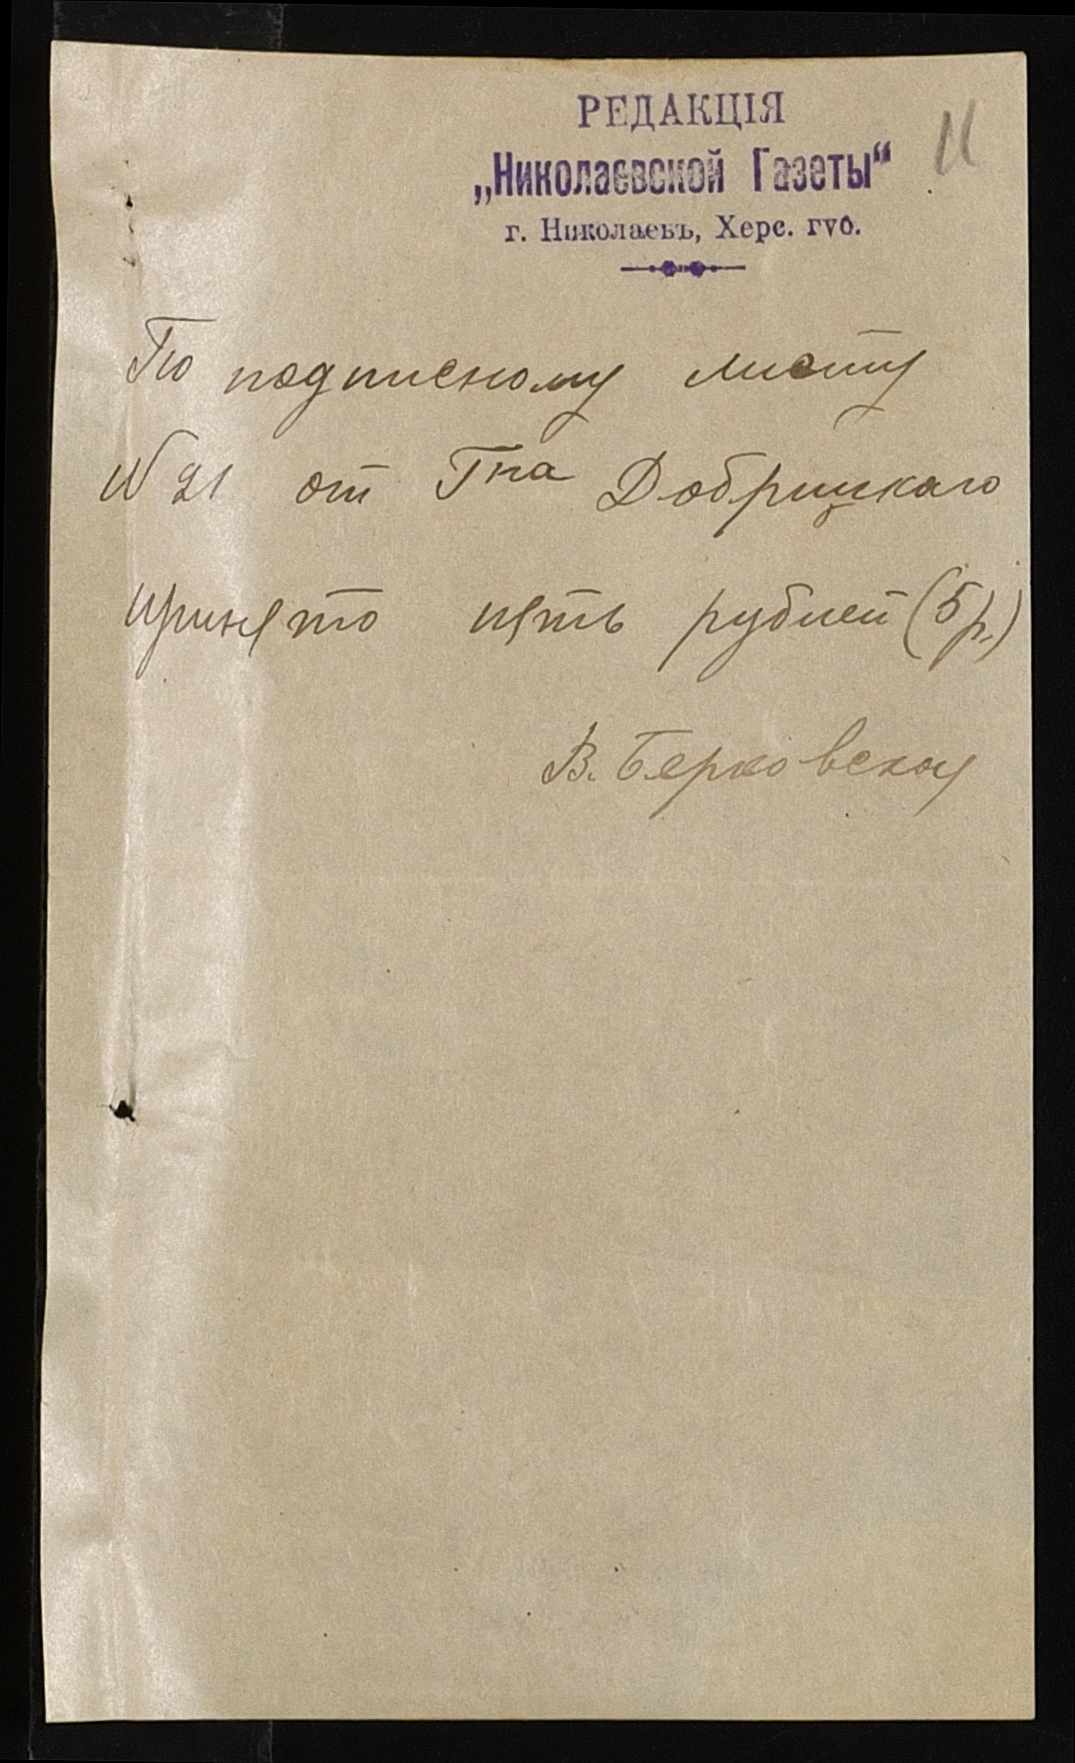 РЕДАКЦІЯ
„Николаевской Газеты“
г. Николаевъ, Херс. губ.
11
По подписному листу
N 21 от Гна Добрицкаго
принято пять рублей (5 р.)
В. Берковская